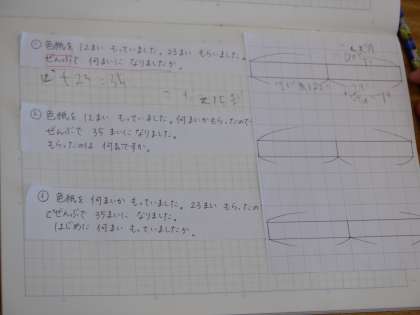 ① 色紙を 12まい もっていました。23まい もらいました。
ぜんぶで 何まいに なりましたか。
12+23=35
② 色紙を 12まい もっていました。何まいかもらったので
ぜんぶで 35まいになりました。
もらったのは 何まいですか。
色紙を 何まいか もっていました。23まい もらったの
でぜんぶで 35まいに なりました。
はじめに 何まい もっていましたか。